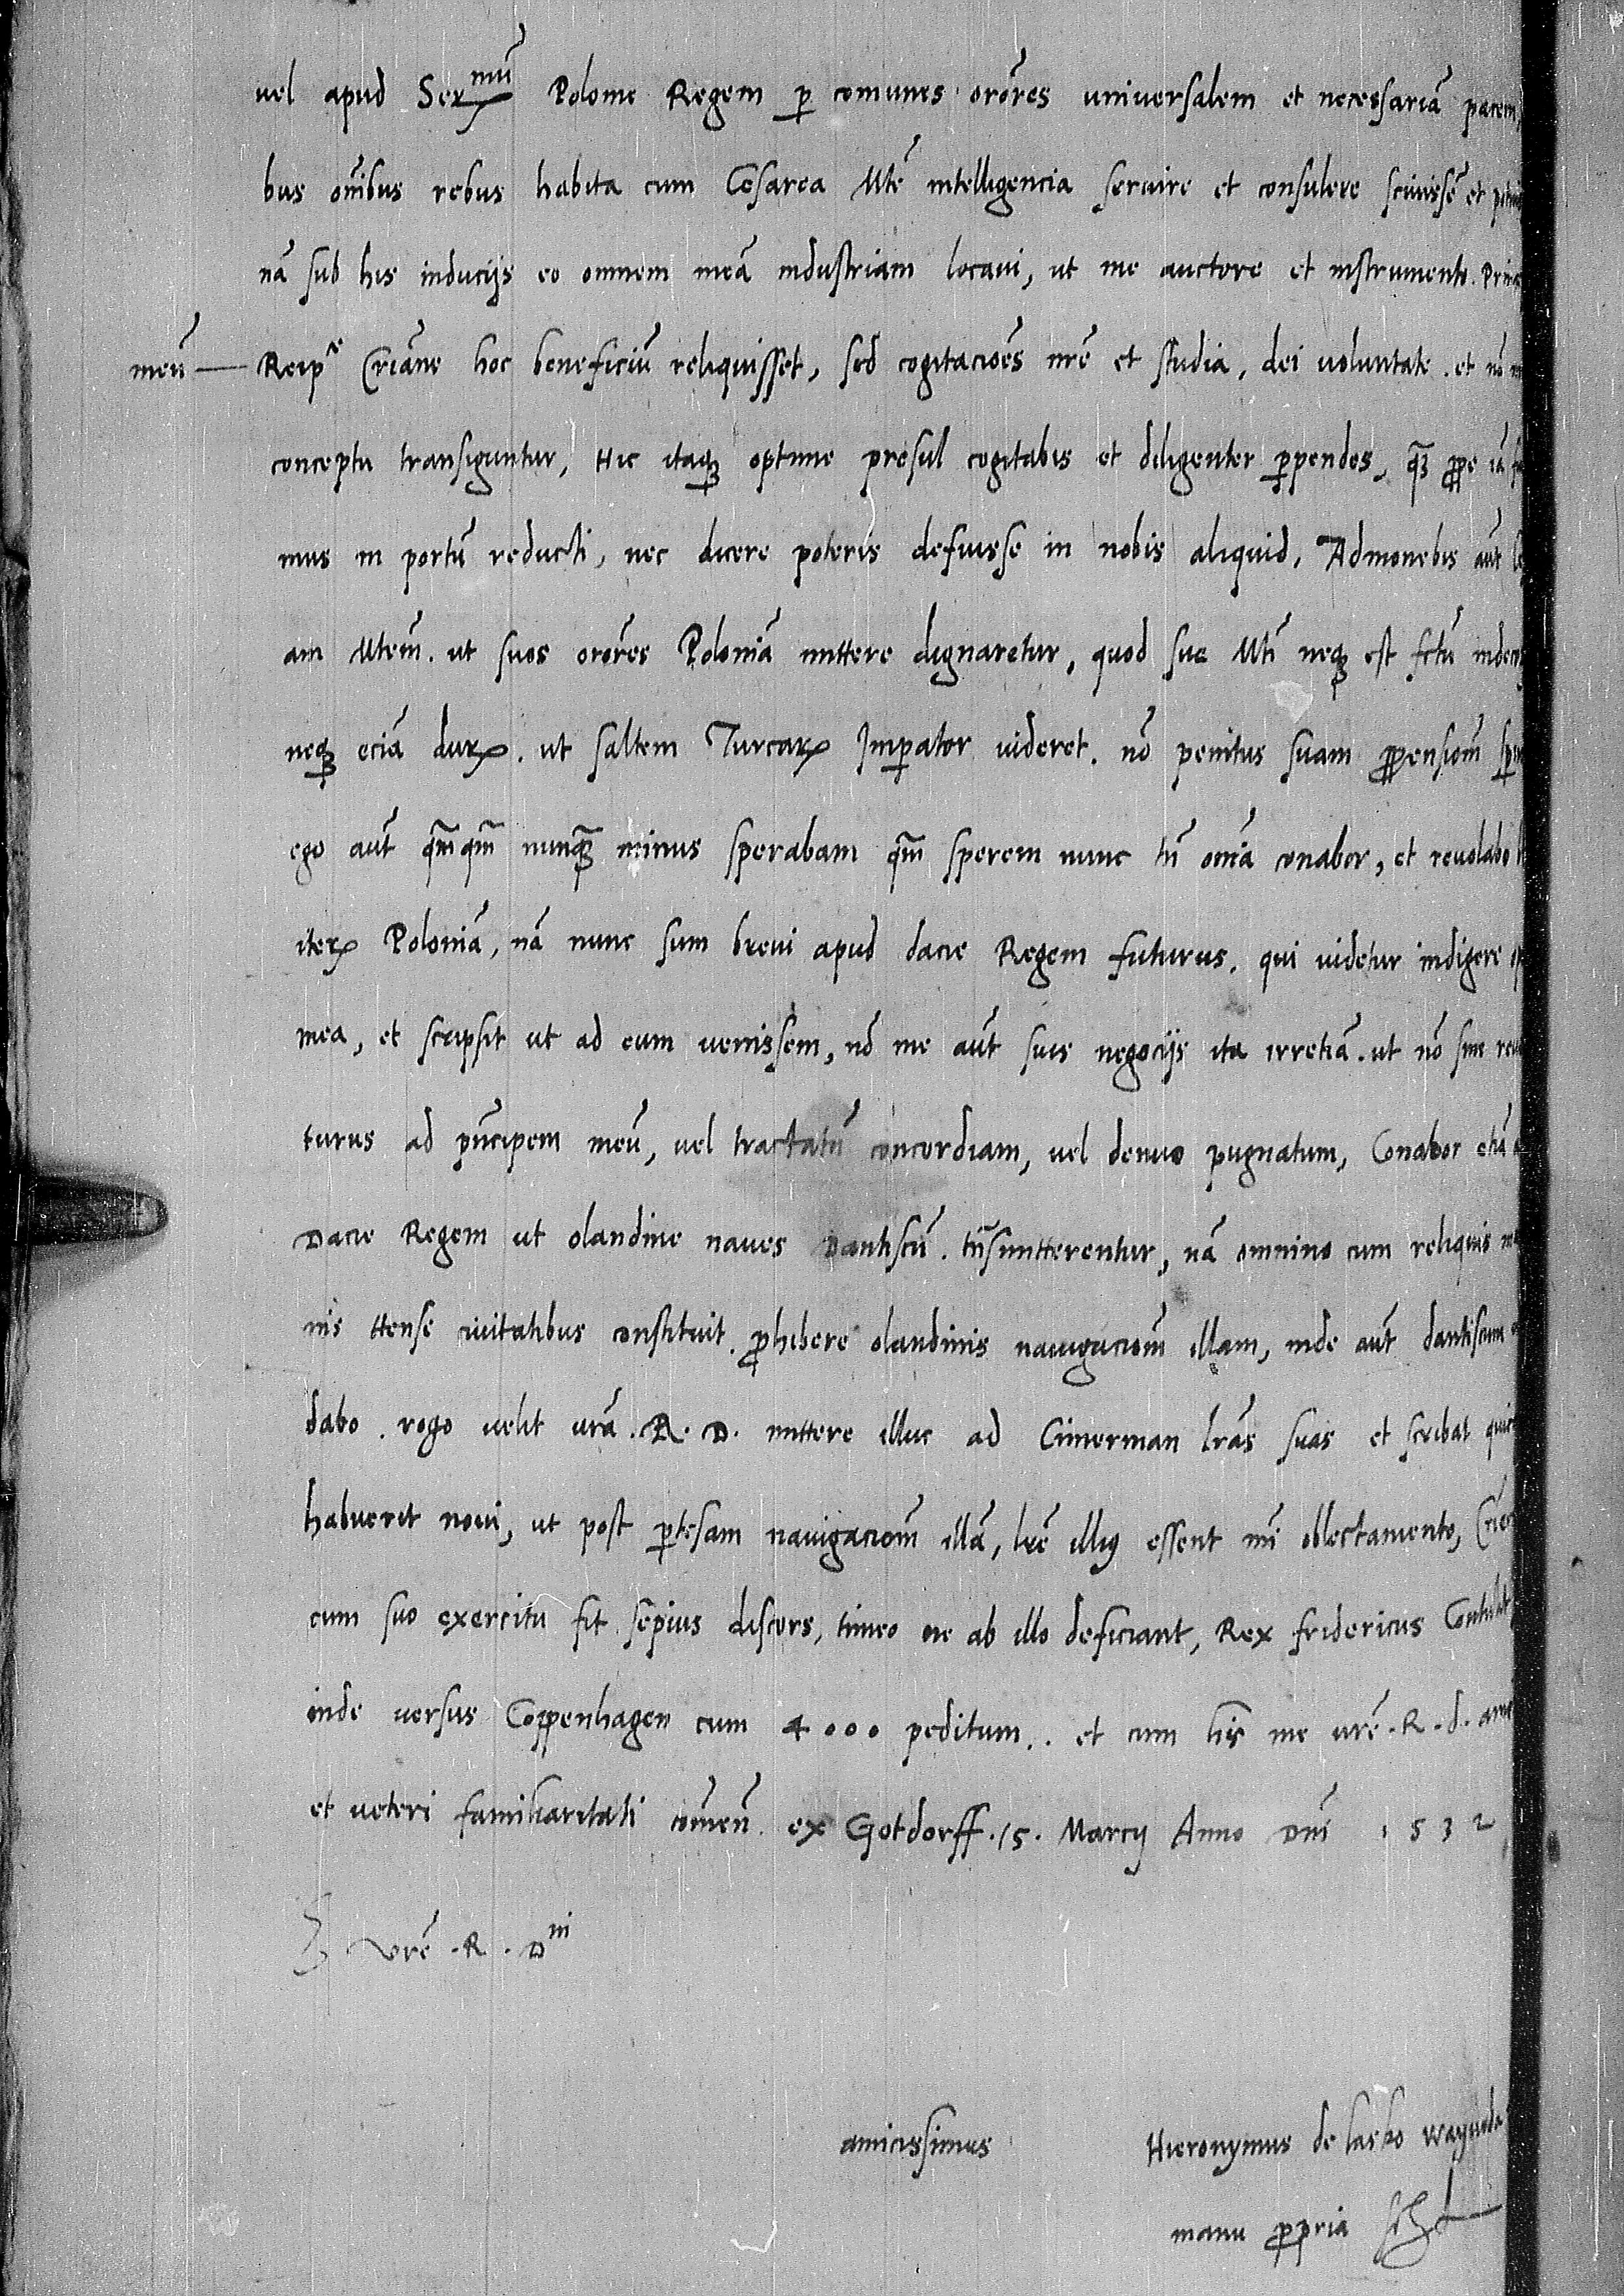 vel apud Ser^mu Polonie Regem p comunes orores universalem et necessaria pacem,
bus oibus rebus habita cum Cesarea Mte intelligencia servire et consulere scivisse et
na sub his inducijs eo omnem mea industriam locavi, ut me auctore et instrumento.
meu — Reip^e Criane hoc beneficiu reliquisset, sed cogitacioes nre et studia, dei voluntate. et no
conceptu transiguntur, Hic itaq optime presul cogitabis et diligenter ppendes, q ppe ia
mus in portu reducti, nec dicere poteris defuisse in nobis aliquid, Admonebis aut
am Mtem. ut suos orores Polonia mittere dignaretur, quod sue Mti neq est fctu
neq ecia dur. ut saltem Turcar Imperator videret. no penitus suam ppensiom
ego aut qmqm nunq minus sperabam qm sperem nunc tn omia conabor, et revolabo
iter Polonia, na nunc sum brevi apud dacie Regem futurus. qui videtur indigere
mea, et scripsit ut ad eum venissem, no me aut suis negocijs ita irretia. ut no sim
turus ad pncipem meu, vel tractatu concordiam, vel denuo pugnatum, Conabor etia
Dacie Regem ut olandine naves Dantiscu. tnsmitterentur, na omnino cum reliquis
nis Hense civitatibus constituit. phibere olandinis navigaciom illam, inde aut dantiscum
dabo. rogo velit vra. R. D. mittere illuc ad Cimerman lras suas et scribat
habuerit novi, ut post ptesam navigaciom illa, lre illig essent mi oblectamento,
cum suo exercitu fit sepius discors, timeo ne ab illo deficiant, Rex fridericus
inde versus Coppenhagen cum 4000 peditum.. et cum his me vre. R. d.
et veteri familiaritati comen. ex Gotdorff. 15. Marcij Anno Dni 1532
vre. R. D^ni
amicissimus Hieronymus de lasko
manu ppria